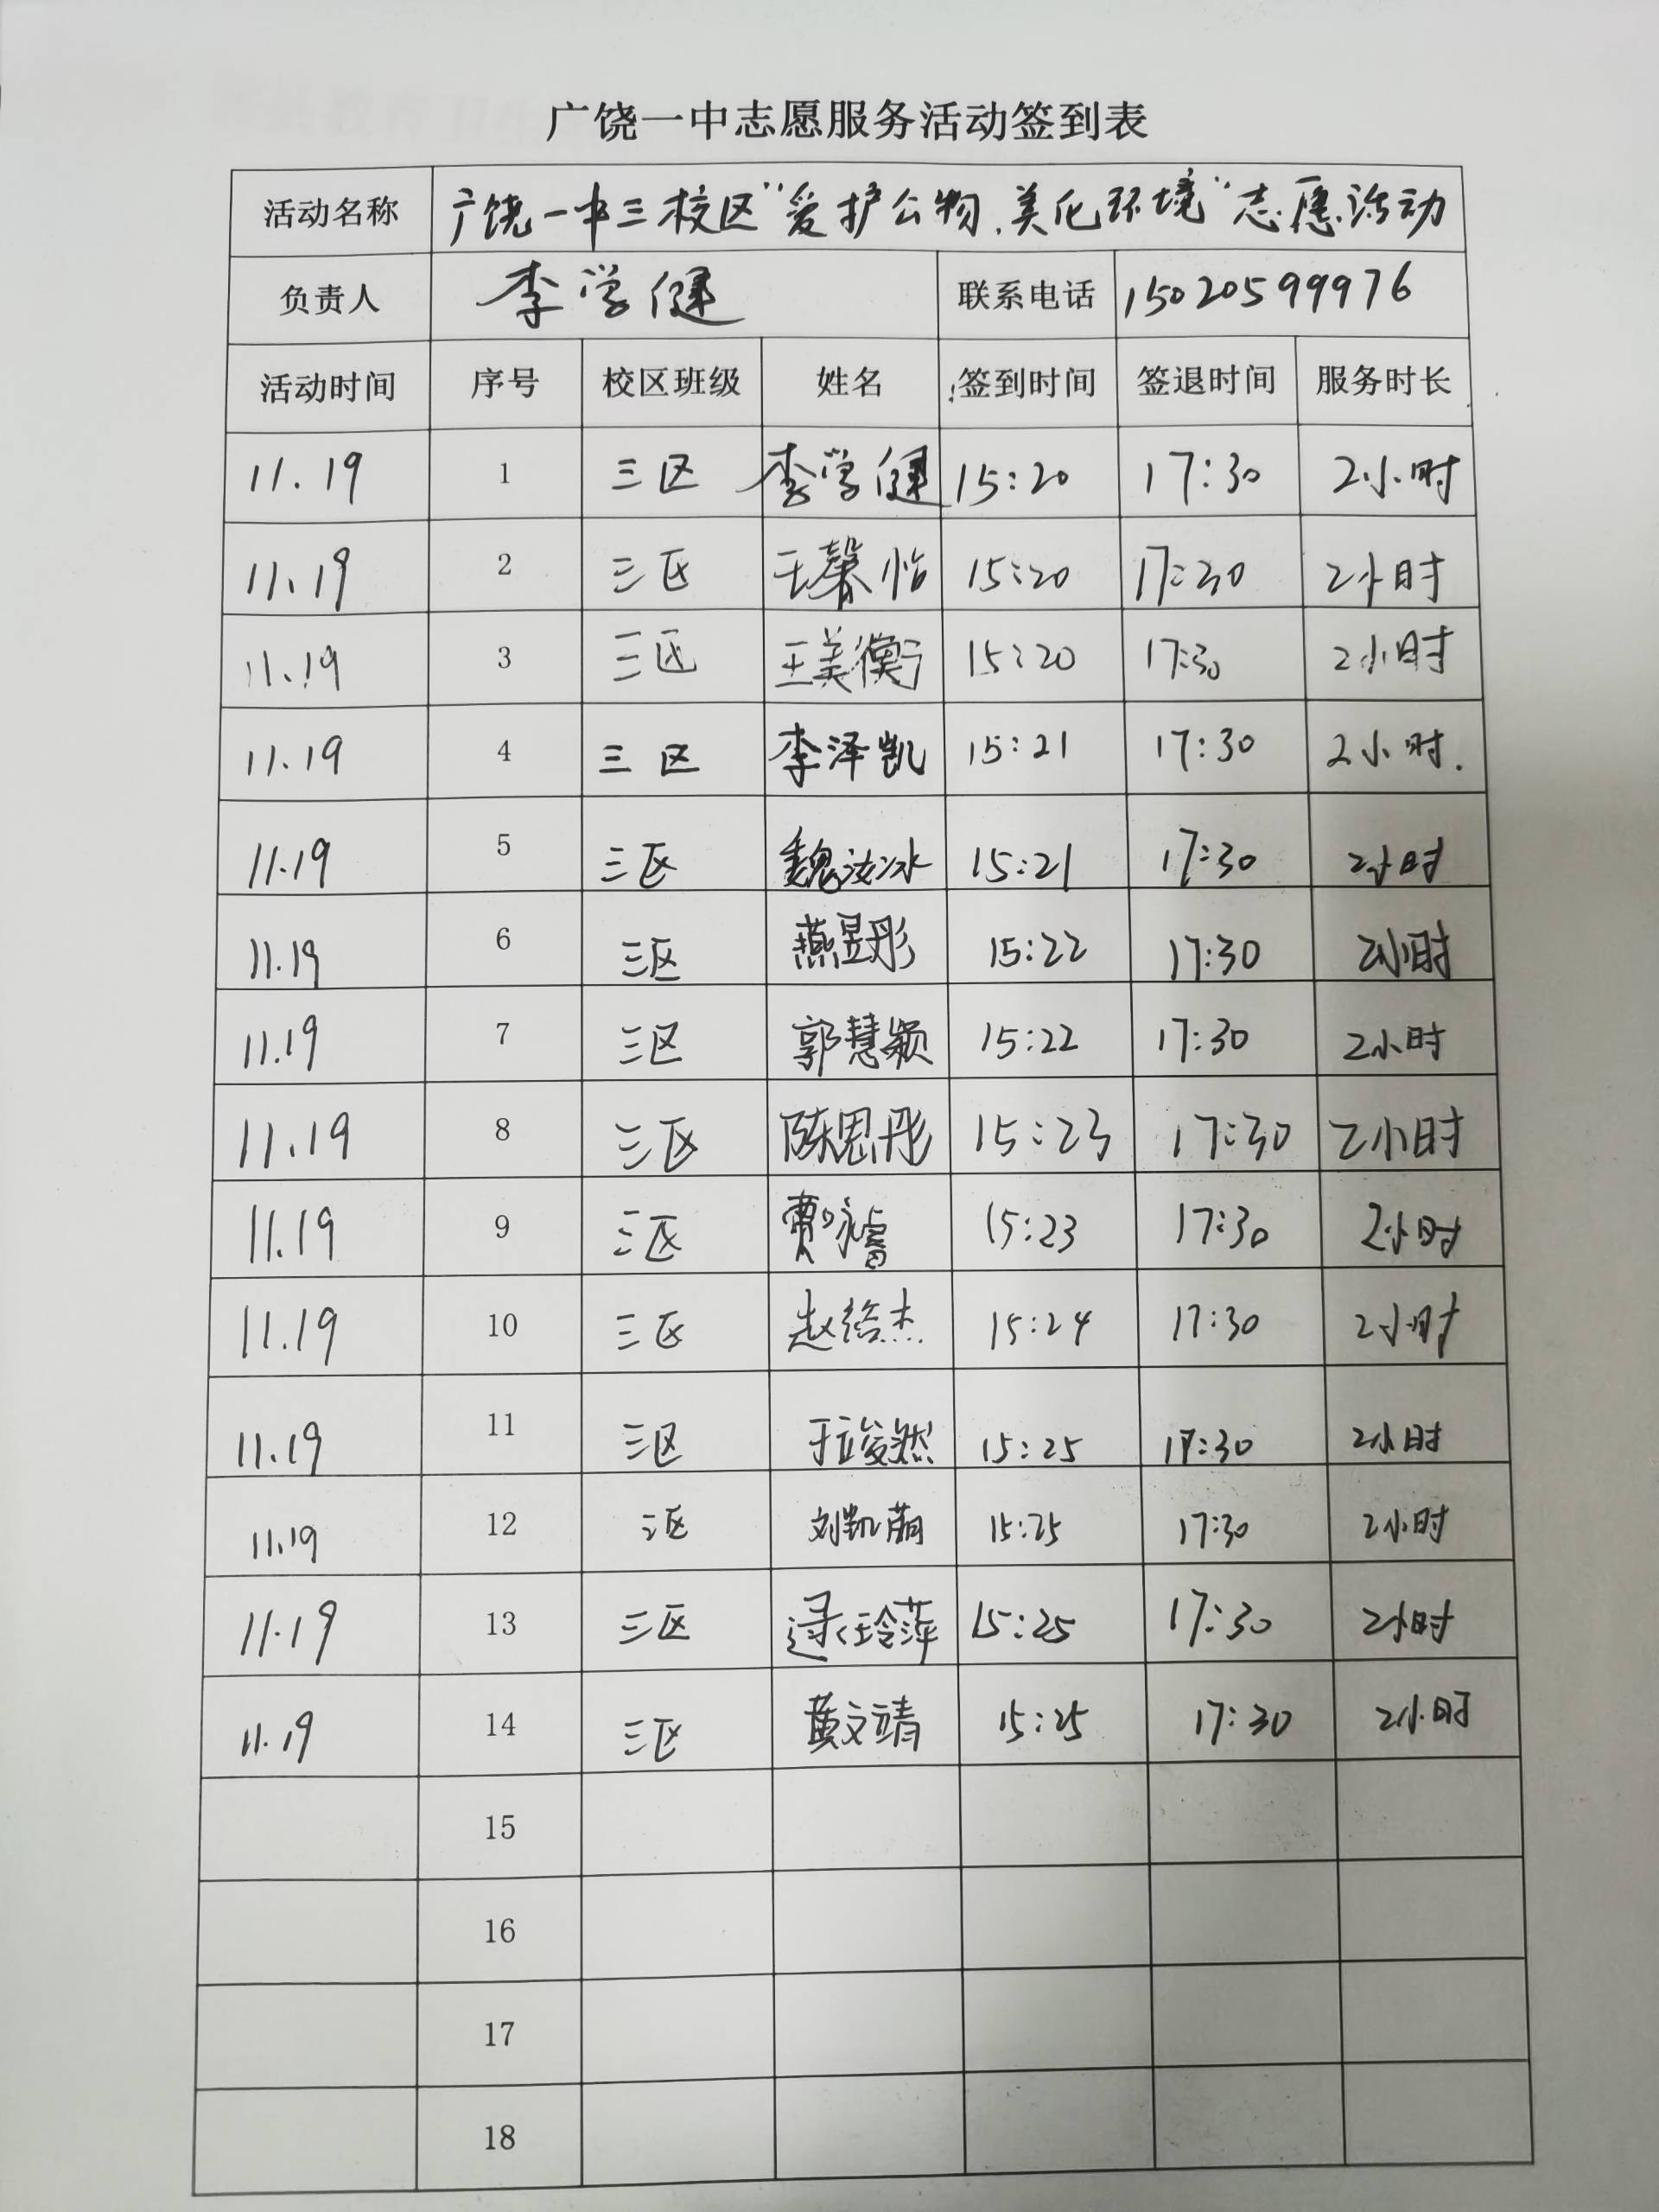 广饶一中志愿服务活动签到表
活动名称 广饶一中三校区“爱护公物、美化环境”志愿活动
负责人 李学健 联系电话 15020599976
活动时间 序号 校区班级 姓名 签到时间 签退时间 服务时长
11.19 1 三区 李学健 15:20 17:30 2小时
11.19 2 三区 王馨怡 15:20 17:30 2小时
11.19 3 三区 王美衡 15:20 17:30 2小时
11.19 4 三区 李泽凯 15:21 17:30 2小时.
11.19 5 三区 魏汝冰 15:21 17:30 2小时
11.19 6 三区 燕昱彤 15:22 17:30 2小时
11.19 7 三区 郭慧颖 15:22 17:30 2小时
11.19 8 三区 陈思彤 15:23 17:30 2小时
11.19 9 三区 15:23 17:30 2小时
11.19 10 三区 15:24 17:30 2小时
11.19 11 三区 15:25 17:30 2小时
11.19 12 三区 15:25 17:30 2小时
11.19 13 三区 15:25 17:30 2小时
11.19 14 三区 黄文靖 15:25 17:30 2小时
15
16
17
18